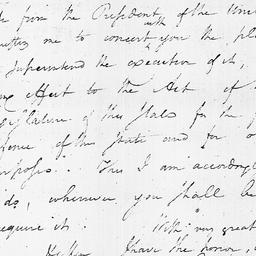 from the President of the Unit
me to concert with you the pl
Superintend the execution of it,
effect to the Act of t
gislature of this State for the f
fence of this State and for o
urposes .. Thus I am accordingl
ds, whenever you shall be
require it.
With very great
I have the honor,